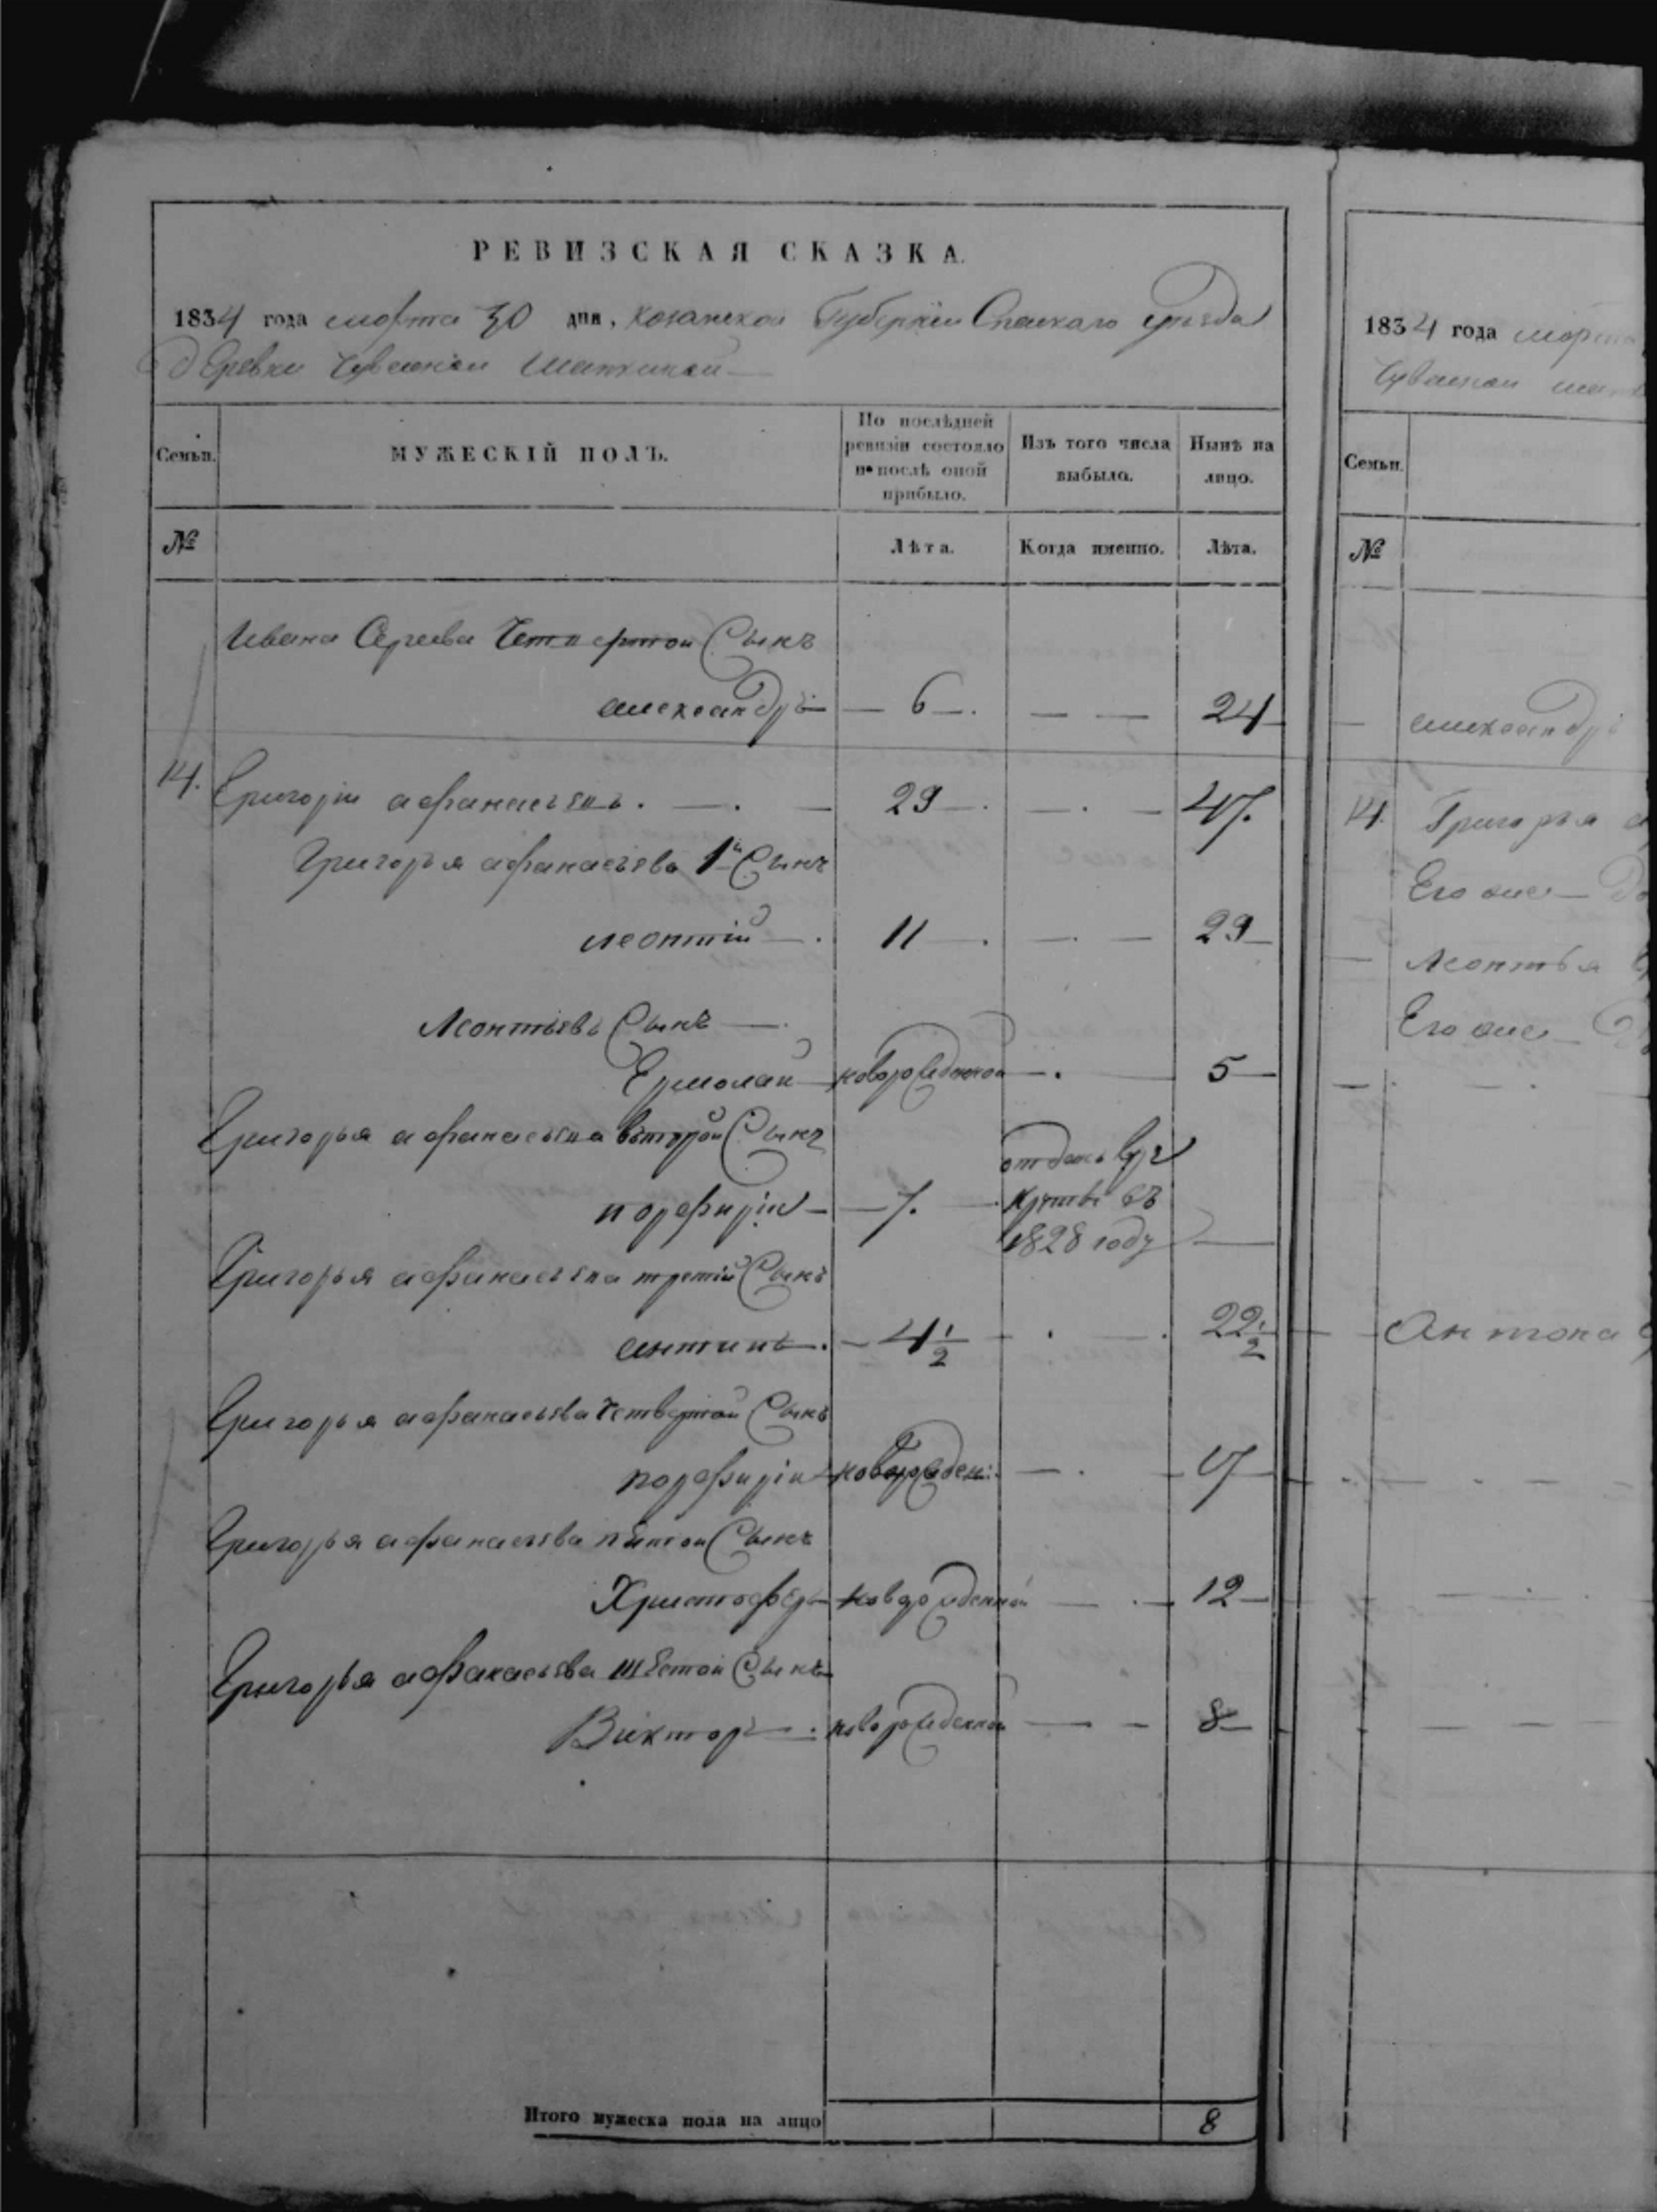 РЕВИЗСКАЯ СКАЗКА.
1834 года марта 30 дня, Казанской Губернии Спаскаго уезда
деревни Чувашской Шапкиной
Семьи.
МУЖЕСКІЙ ПОЛЪ.
По послѣдней ревизіи состояло и послѣ оной прибыло.
Изъ того числа выбыло.
Нынѣ на лицо.
№
Лѣта.
Когда именно.
Лѣта.
Ивана Сергеева Четвертой Сынъ
александръ — 6 — . — — 24
14. Григорiи афанасьевъ . — . — 29 — . — . — 47.
Григорья афанасьева 1й Сынъ
леонтiй — . 11 — . — . — 29
Леонтьевъ Сынъ — .
Ермолай — новорожденной — . — 5
Григорья афанасьева второй Сынъ
порфирiи — 7. — отданъ в рекруты въ 1828 году —
Григорья афанасьева третiй Сынъ
антипъ . — 4 1/2 — . — . 22 1/2
Григорья афанасьева Четвертой Сынъ
порфирiи — новорожден: — . — 17
Григорья афанасьева пятои Сынъ
Христофоръ — новорожденной — . — 12
Григорья афанасьева шестой Сынъ
Викторъ — . новорожденной — — 8
Итого мужеска пола на лицо 8
1834 года марта
Чувашской
Семьи.
№
александръ
14. Григорья
Его же
Леонтья
Его же
Антона